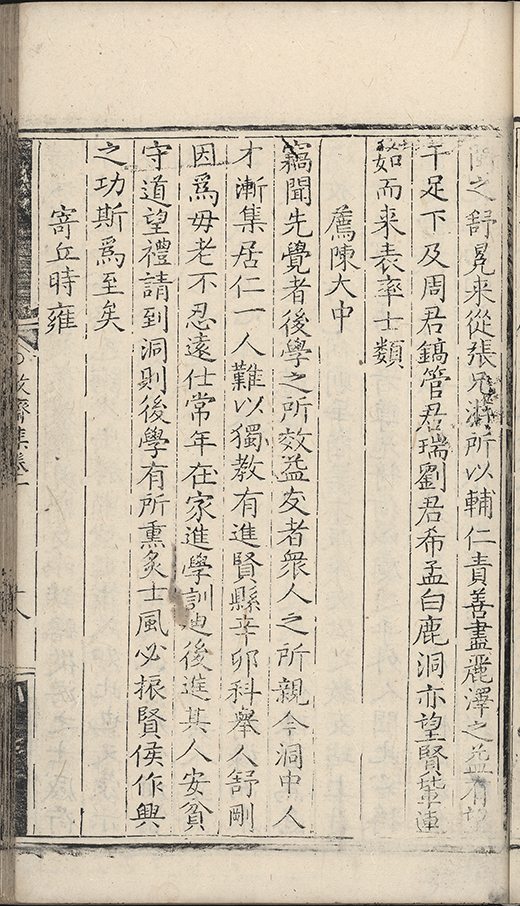 之舒晃来從張兄游所以輔仁責善盡麗澤之益有望
于足下及周君鎬管君瑞劉君希孟白鹿洞亦望賢輩連
茹而来表率士類
薦陳大中
竊聞先覺者後學之所效益友者衆人之所親今洞中人
才漸集居仁一人難以獨教有進賢縣辛卯科舉人舒剛
因爲毋老不忍遠仕常年在家進學訓迪後進其人安貧
守道望禮請到洞則後學有所熏炙士風必振賢侯作興
之功斯爲至矣
寄丘時雍
敬齋集卷一
十八